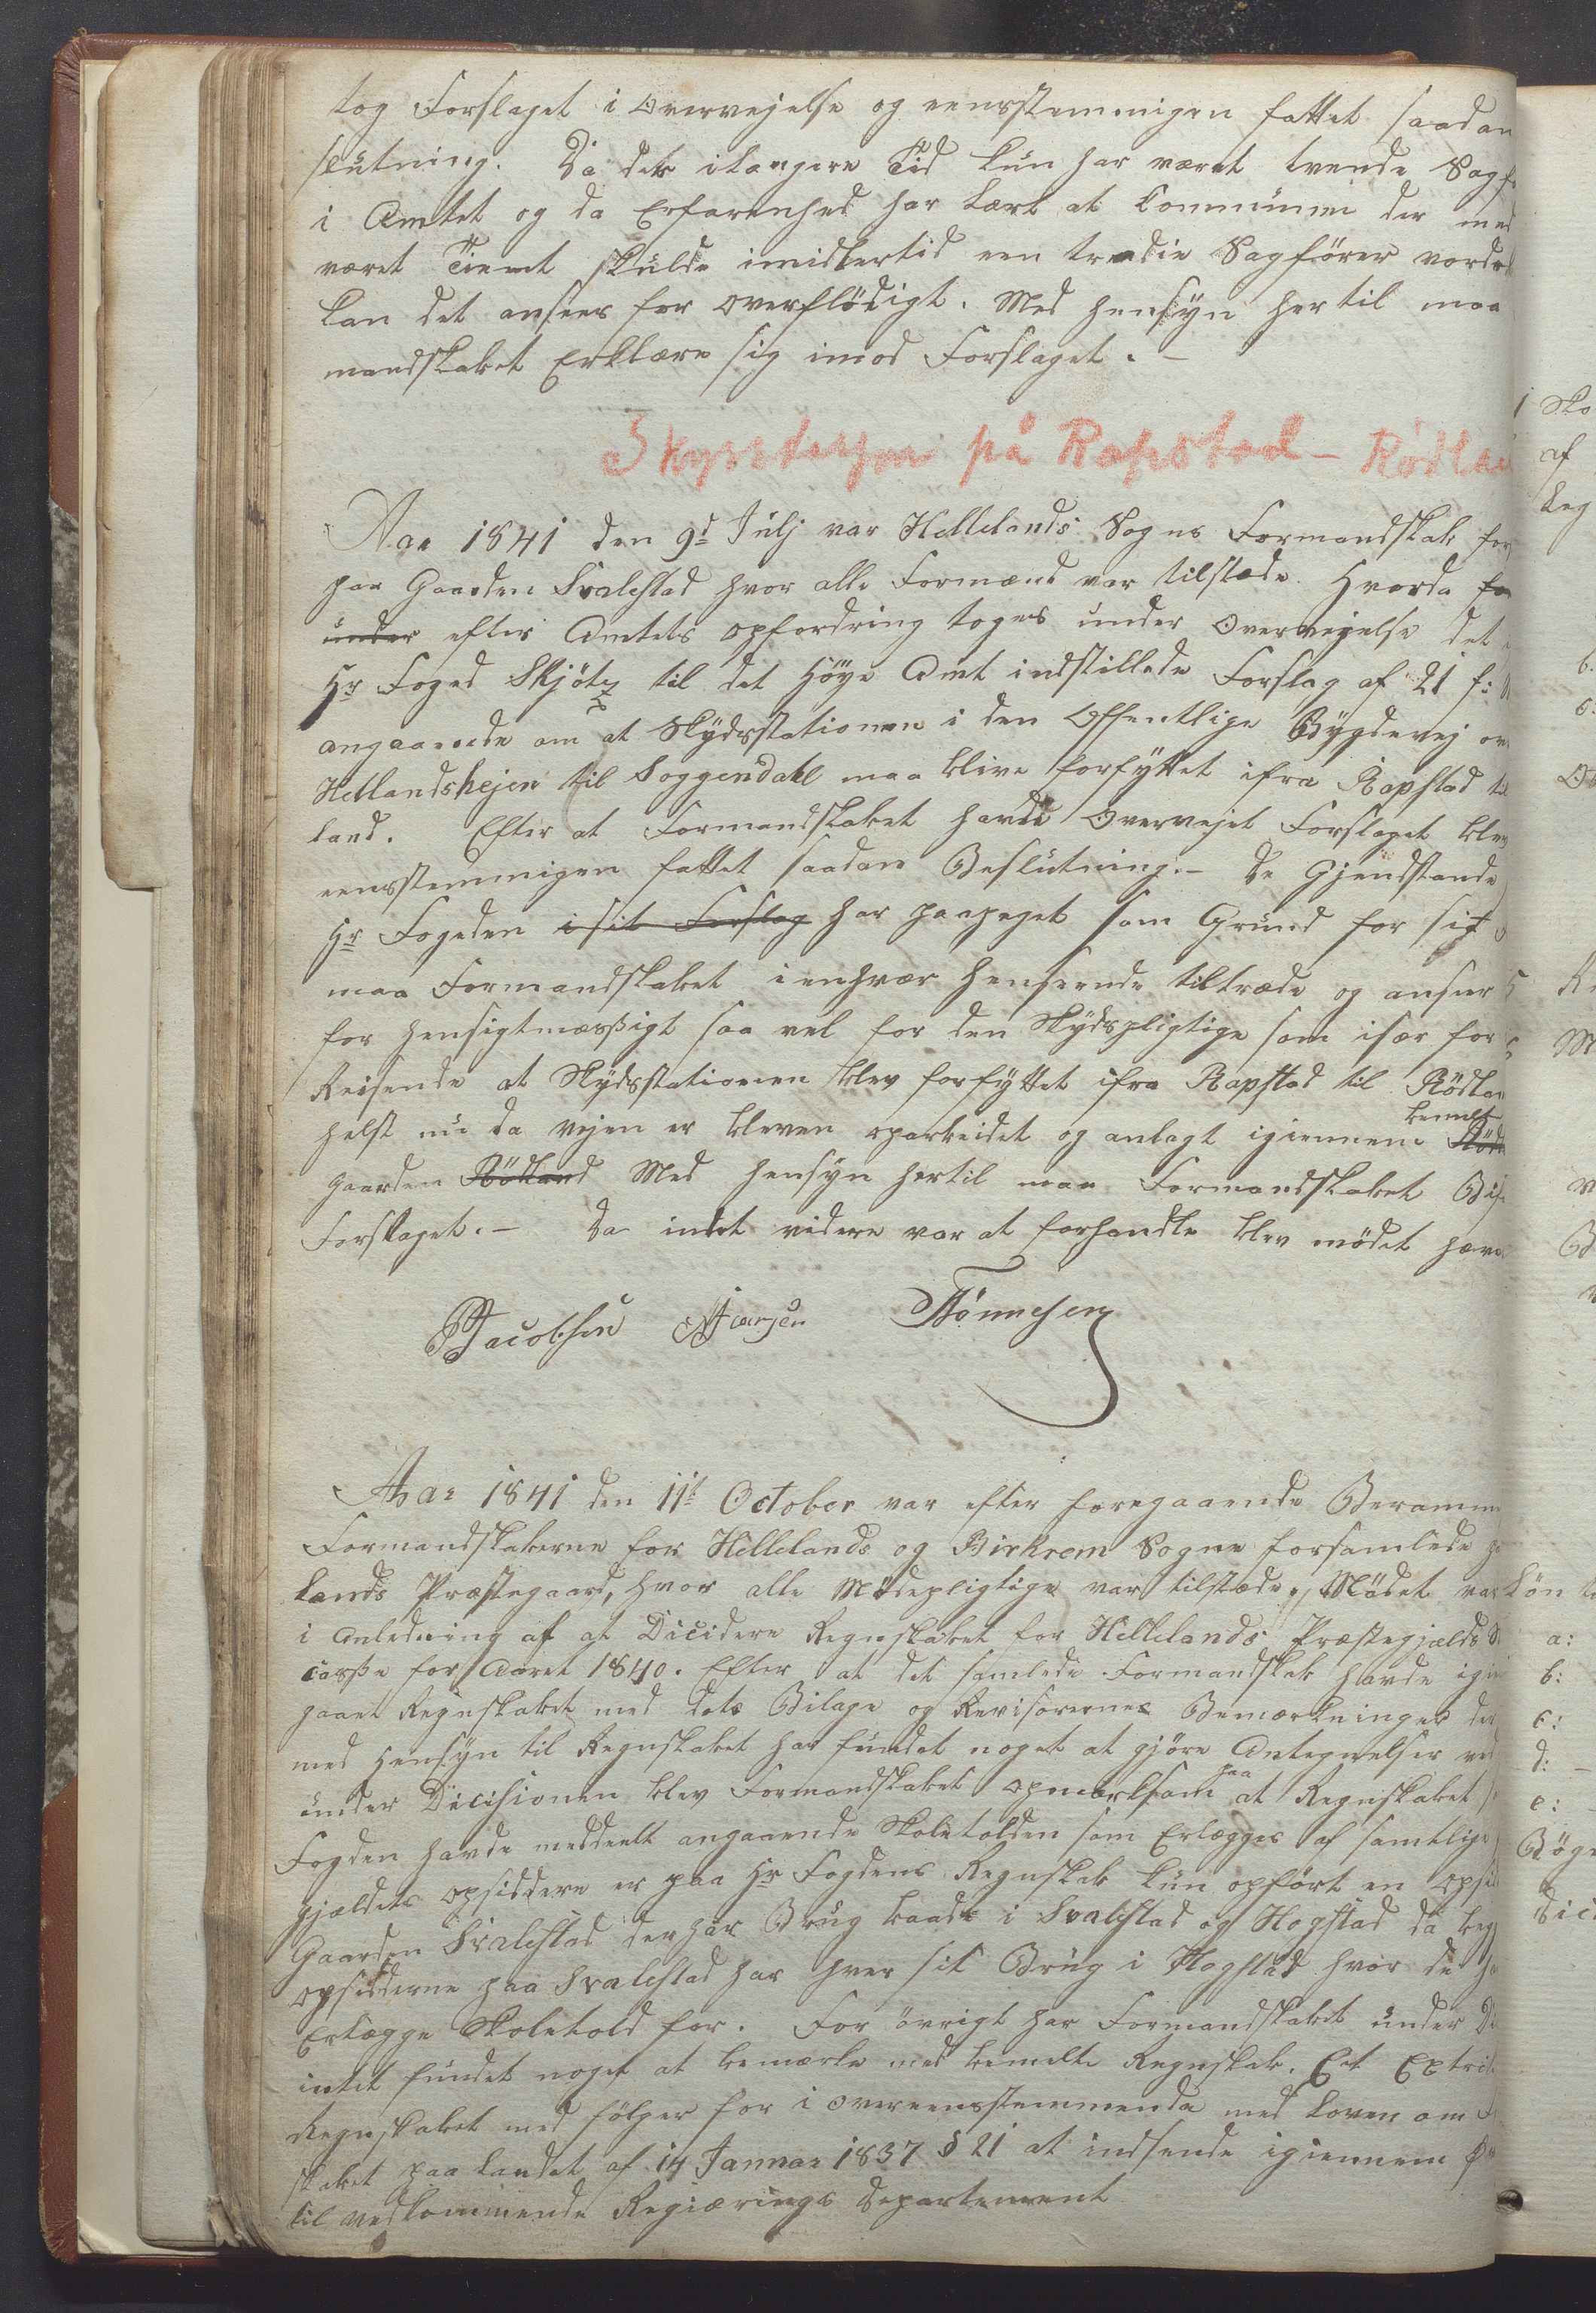 tog Forslaget i Overvejelse og eensstemmigen fattet saadan
slutning. Da der i længere Tid kun har været tvende Sagf
i Amtet og da Erfarenhed har Lært at Communen der med
været Tient skulde imidlertid een tredie Sagfører vorde
kan det ansees for overflödigt. Med Hensÿn hertil maa
mandskabet Erklære sig imod Forslaget. –
Skysstasjon på Rapstad – Rødlan
Aar 1841 den 9d Julj var Hellelands Sogns Formandskab for
paa Gaarden Svalestad hvor alle Formænd var tilstæde. Hvorda
under efter Amtets opfordring toges under Overvejelse det
Hr Foged Skjötz til det Höye Amt indstillede Forslag af 21 f:
angaaende om at Skÿdsstationen i den Offentlige Bÿgdevej ov
Hellandshejen til Soggendahl maa blive forfÿttet ifra Rapstad til
land. Efter at Formandskabet havde Overvejet Forslaget blev
eensstemmigen fattet saadan Beslutning: – De Gjendstande
Hr Fogeden i sit Forslag har paapeget som Grund for sit
maa Formandskabet i enhver henseende tiltræde og anseer
for hensigtmæssigt saa vel for den Skÿdspligtige som især for
Reisende at Skÿdsstationen blev forfÿttet ifra Rapstad til Rödlan
helst nu da vejen er bleven oparbeidet og anlagt igiennem bemelte Röd
gaarden Rödland Med Hensÿn hertil maa Formandskabet Bif
Forslaget. – Da intet videre var at forhandle blev mödet hæve
Jacobsen Iversen Tönnesen
Aar 1841 den 11t October var efter foregaaende Beramm
Formandskaberne for Hellelands og Birkrem Sogne forsamlede
lands Præstegaard, hvor alle Mödepligtige var tilstæde. Mödet var
i Anledning af at Dicidere Regnskabet for Hellelands Præstegjælds S
casse for Aaret 1840. Efter at det samlede Formandskab havde igien
gaaet Regnskabet med dets Bilage og Revisorernes Bemærkninger der
med Hensÿn til Regnskabet har fundet noget at gjöre Antegnelser ved
under Dicisionen blev Formandskabet opmærksam paa at Regnskabet
Fogden havde meddeelt angaaende Skoletolden som Erlægges af samtlige
gjældets Opsiddere er paa Hr Fogdens Regnskab kun opfört en Opsid
Gaarden Svalestad der har Brug baade i Svalestad og Hogstad da beg
Opsidderne paa Svalestad har hver sit Brug i Hogstad hvor de
Erlægge Skoletold for. For övrigt har Formandskabet under Di
intet fundet noget at bemærke med bemelte Regnskab. Et Extrik
Regnskabet med fölger for i overeensstemmende med Loven om F
skabet paa Landet af 14 Januar 1837 § 21 at indsende igiennem
til vedkommende Regiærings Departement